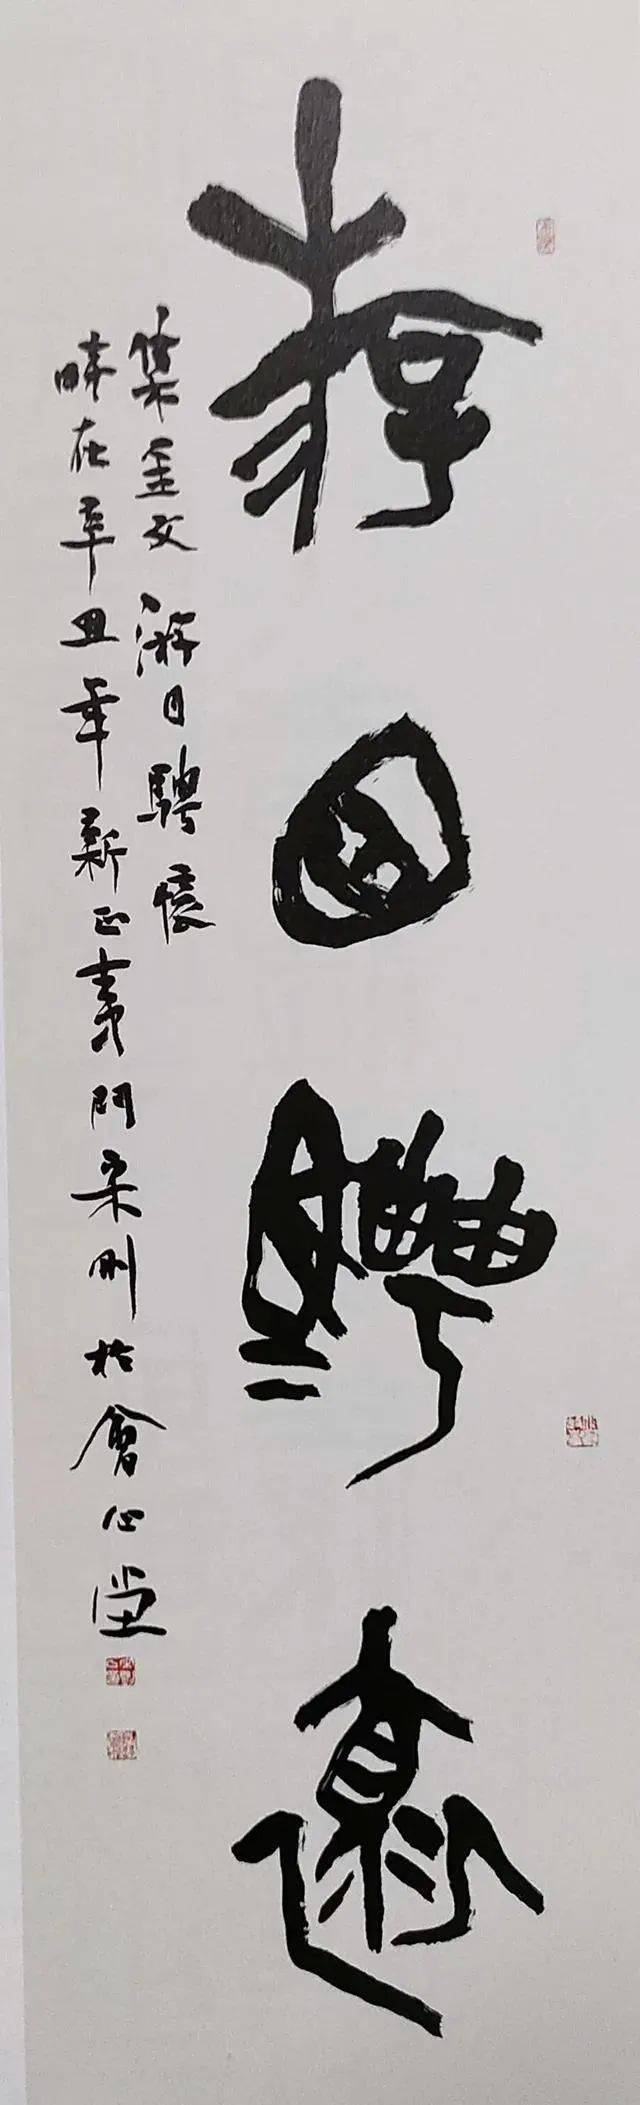 游目骋怀
集金文 游目騁懷
時在辛丑年新正義門宋刚於會心堂